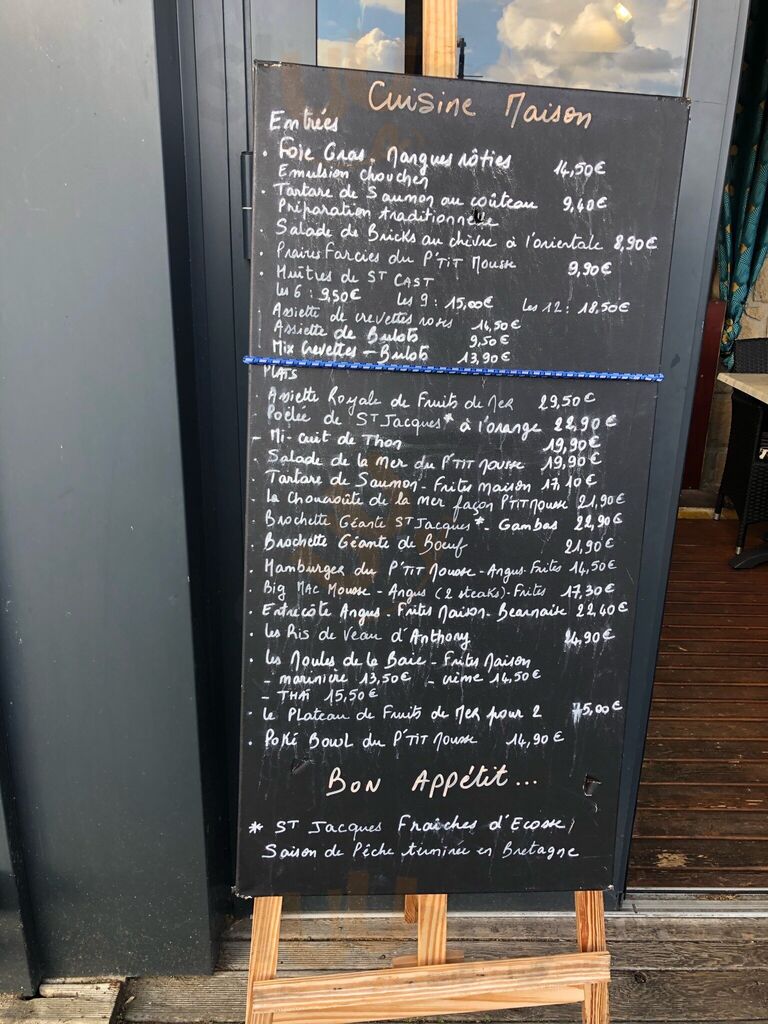 Cuisine Maison
Entrées
. Foie Gras. Mangues rôties 14,50€
Emulsion chouchen
. Tartare de Saumon au coûteau 9,40€
Préparation traditionnelle
. Salade de Bricks au chèvre à l'orientale 8,90€
. Praires Farcies du P'TIT Mousse 9,90€
. Huîtres de ST CAST
les 6 : 9,50€ les 9 : 15,00€ les 12 : 18,50€
. Assiette de crevettes roses 14,50€
. Assiette de Bulots 9,50€
. Mix Crevettes - Bulots 13,90€
PLATS
. Assiette Royale de Fruits de Mer 29,50€
. Poêlée de ST Jacques* à l'orange 22,90€
- Mi-cuit de Thon 19,90€
. Salade de la Mer du P'TIT Mousse 19,90€
. Tartare de Saumon - Frites Maison 17,10€
. La Choucroûte de la mer façon P'TIT Mousse 21,90€
. Brochette Géante ST Jacques*. Gambas 22,90€
. Brochette Géante de Boeuf 21,90€
. Hamburger du P'TIT Mousse - Angus-Frites 14,50€
. Big Mac Mousse - Angus (2 steaks)-Frites 17,30€
. Entrecôte Angus - Frites Maison - Bearnaise 22,40€
. Les Ris de Veau d'Anthony 24,90€
. Les Moules de la Baie - Frites Maison
- marinière 13,50€ - crème 14,50€
- THAÏ 15,50€
. Le Plateau de Fruits de Mer pour 2 75,00€
. Poké Bowl du P'TIT Mousse 14,90€
Bon Appétit...
* ST Jacques Fraîches d'Ecosse /
Saison de Pêche terminée en Bretagne